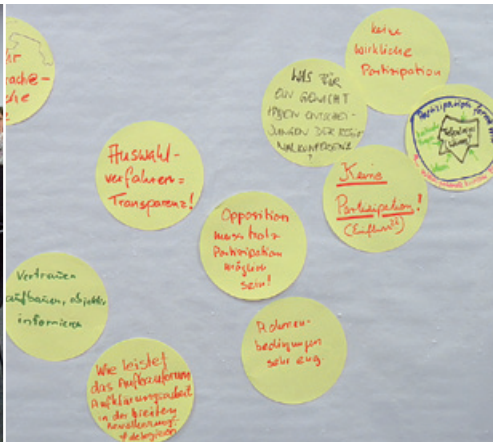 keine
wirkliche
Partizipation
WAS FÜR
EIN GEWICHT
HABEN ENTSCHEI-
DUNGEN DER REGIO
NALKONFERENZ
?
Auswahl-
verfahren =
Transparenz!
Keine
Partizipation!
(Einfluss)
Opposition
muss trotz
Partizipation
möglich
sein!
Vertrauen
aufbauen, objektiv
informieren
Rahmen-
bedingungen
sehr eng.
Wie leistet
das Aufbauforum
Aufklärungsarbeit
in der breiten
Bevölkerung.